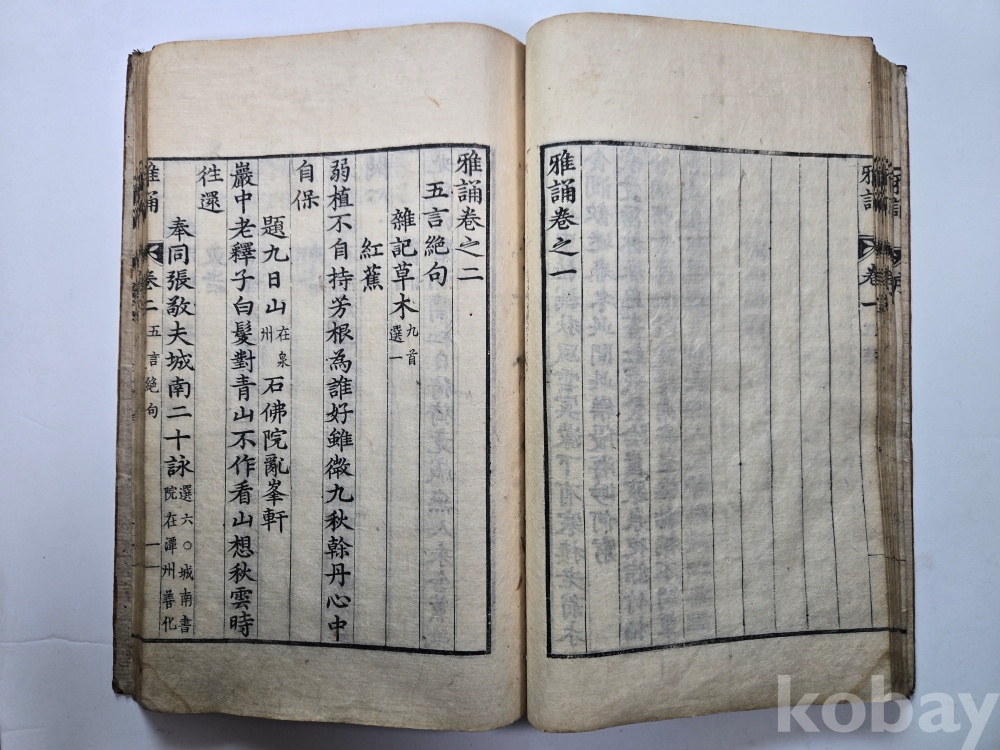 雅誦
卷一
雅誦卷之一
雅誦卷之二
五言絕句
雜記草木九首選一
紅蕉
弱植不自持芳根為誰好雖微九秋幹丹心中
自保
題九日山在泉州石佛院亂峯軒
巖中老釋子白髮對青山不作看山想秋雲時
徃還
奉同張敬夫城南二十詠選六○城南書院在潭州善化
雅誦
卷二
五言絕句
一
kobay